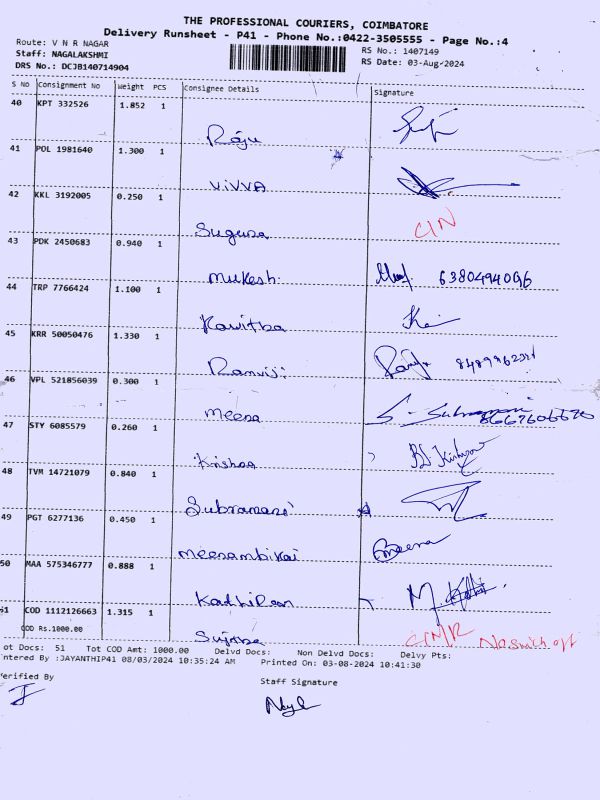 THE PROFESSIONAL COURIERS, COIMBATORE
Delivery Runsheet - P41 - Phone No.:0422-3505555 - Page No.:4
Route: V N R NAGAR
RS No.: 1407149
Staff: NAGALAKSHMI
RS Date: 03-Aug-2024
DRS No.: DCJB140714904
S NO Consignment No Weight PCS Consignee Details Signature
40 KPT 332526 1.852 1
Raju
41 POL 1981640 1.300 1
VIVVA
42 KKL 3192005 0.250 1
Suguna CIN
43 PDK 2450683 0.940 1
Mukesh 6380494096
44 TRP 7766424 1.100 1
Kavitha
45 KRR 50050476 1.330 1
Ramviji
46 VPL 521856039 0.300 1
Meena 8667606670
47 STY 6085579 0.260 1
Krishna
48 TVM 14721079 0.840 1
Subramani
49 PGT 6277136 0.450 1
Meenambikai Meena
50 MAA 575346777 0.888 1
Kadhiran
51 COD 1112126663 1.315 1
COD Rs.1000.00
Sujitha
ot Docs: 51 Tot COD Amt: 1000.00 Delvd Docs: Non Delvd Docs: Delvy Pts:
ntered By :JAYANTHIP41 08/03/2024 10:35:24 AM Printed On: 03-08-2024 10:41:30
erified By
Staff Signature